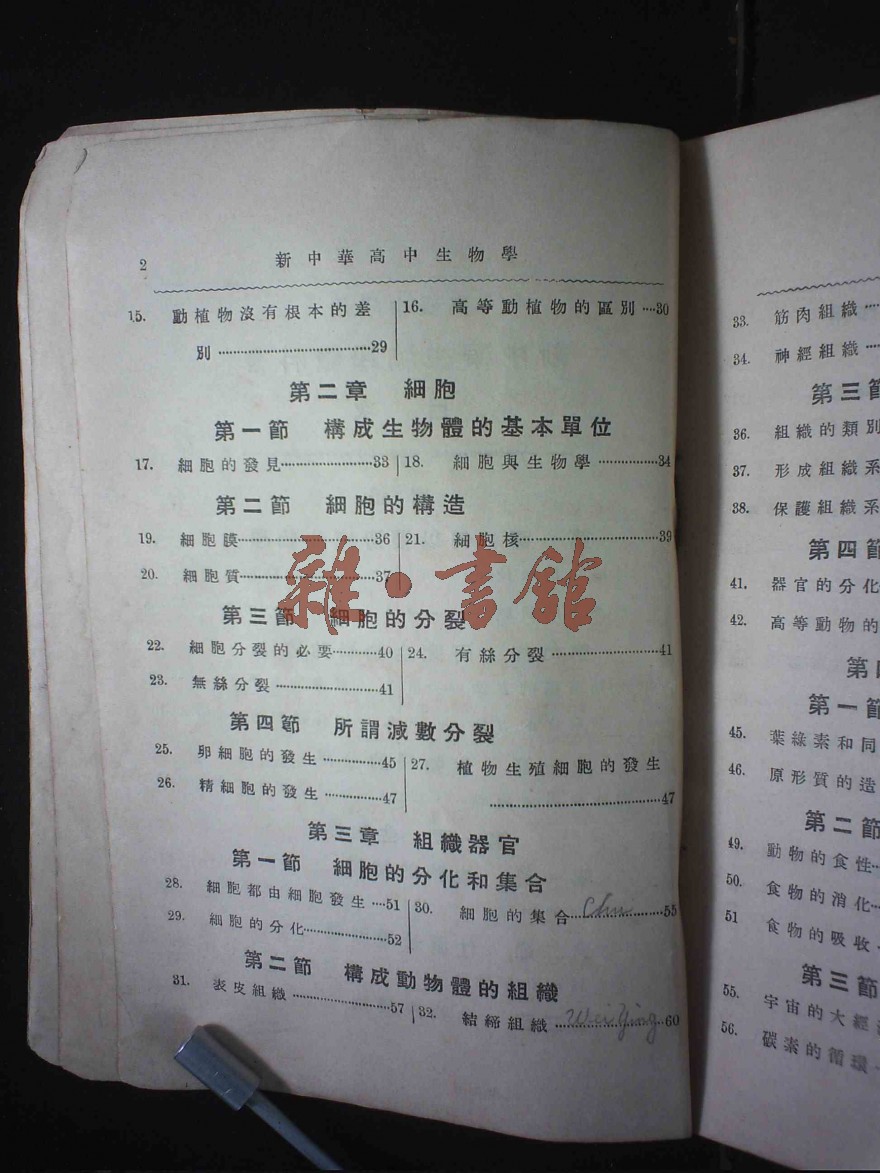 2
新中華高中生物學
15. 動植物沒有根本的差
別……29
16. 高等動植物的區別…30
第二章 細胞
第一節 構成生物體的基本單位
17. 細胞的發見……33
18. 細胞與生物學……34
第二節 細胞的構造
19. 細胞膜……36
20. 細胞質……37
21. 細胞核……39
第三節 細胞的分裂
22. 細胞分裂的必要……40
23. 無絲分裂……41
24. 有絲分裂……41
第四節 所謂減數分裂
25. 卵細胞的發生……45
26. 精細胞的發生……47
27. 植物生殖細胞的發生
……47
第三章 組織器官
第一節 細胞的分化和集合
28. 細胞都由細胞發生…51
29. 細胞的分化……52
30. 細胞的集合……55
Chu
第二節 構成動物體的組織
31. 表皮組織……57
32. 結締組織……60
Wei Ying
雜·書館
33. 筋肉組織…
34. 神經組織…
第三節
36. 組織的類別
37. 形成組織系
38. 保護組織系
第四節
41. 器官的分化
42. 高等動物的
第
第一節
45. 葉綠素和同
46. 原形質的造
第二節
49. 動物的食性…
50. 食物的消化…
51 食物的吸收
第三節
55. 宇宙的大經
56. 碳素的循環